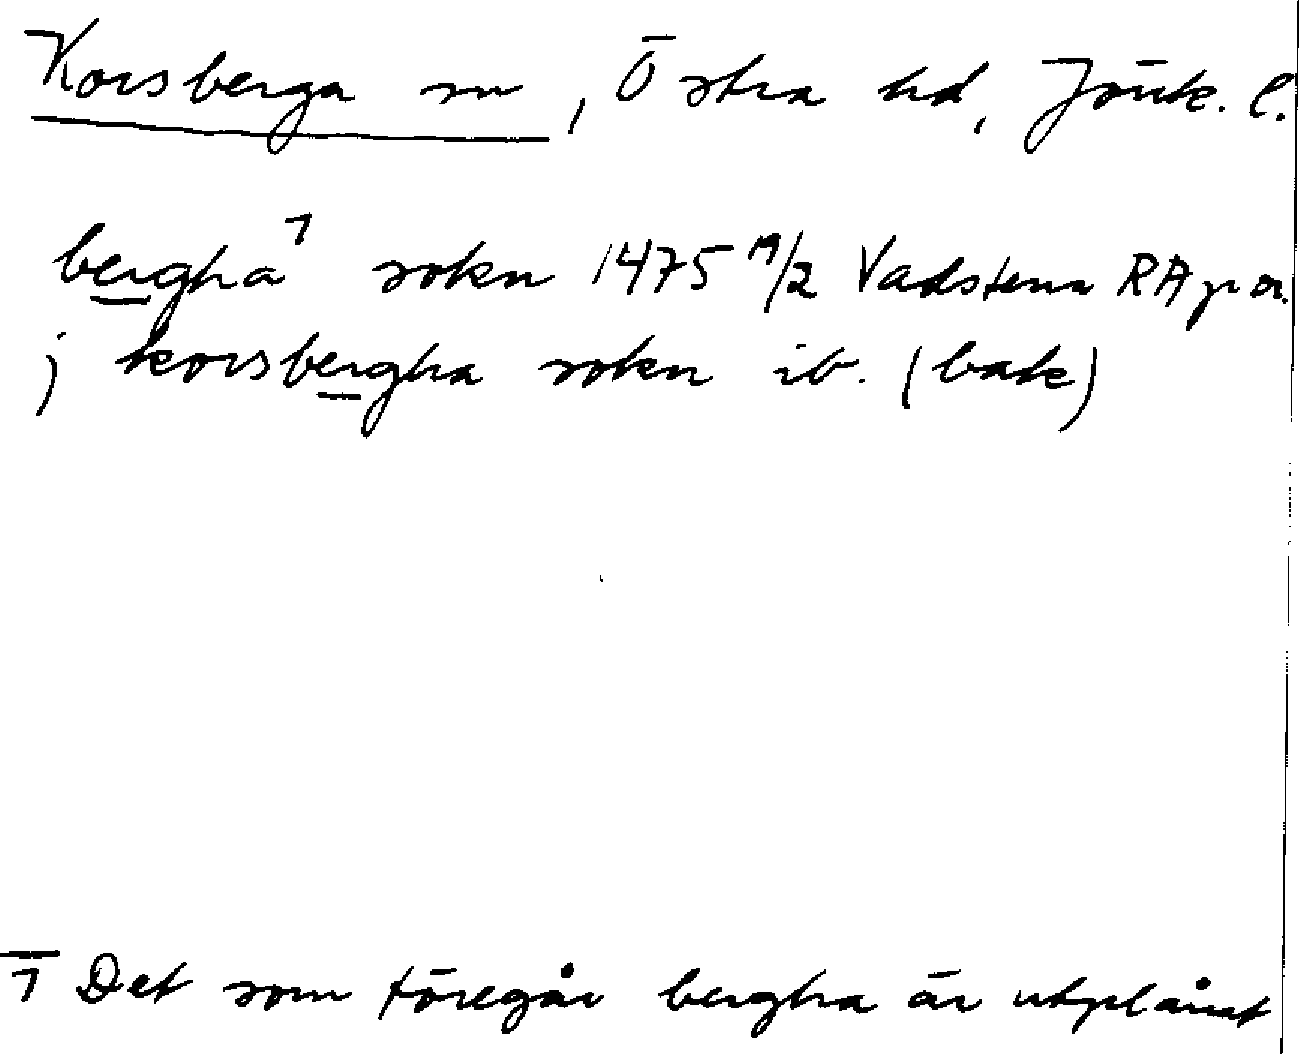 Korsberga sn, Östra hd, Jönk. l.
bergha 1) sokn 1475 19/2 Vadstena RA pr or.
j korsbergha sokn ib. (bak)
1 Det som föregår bergha är utplånat